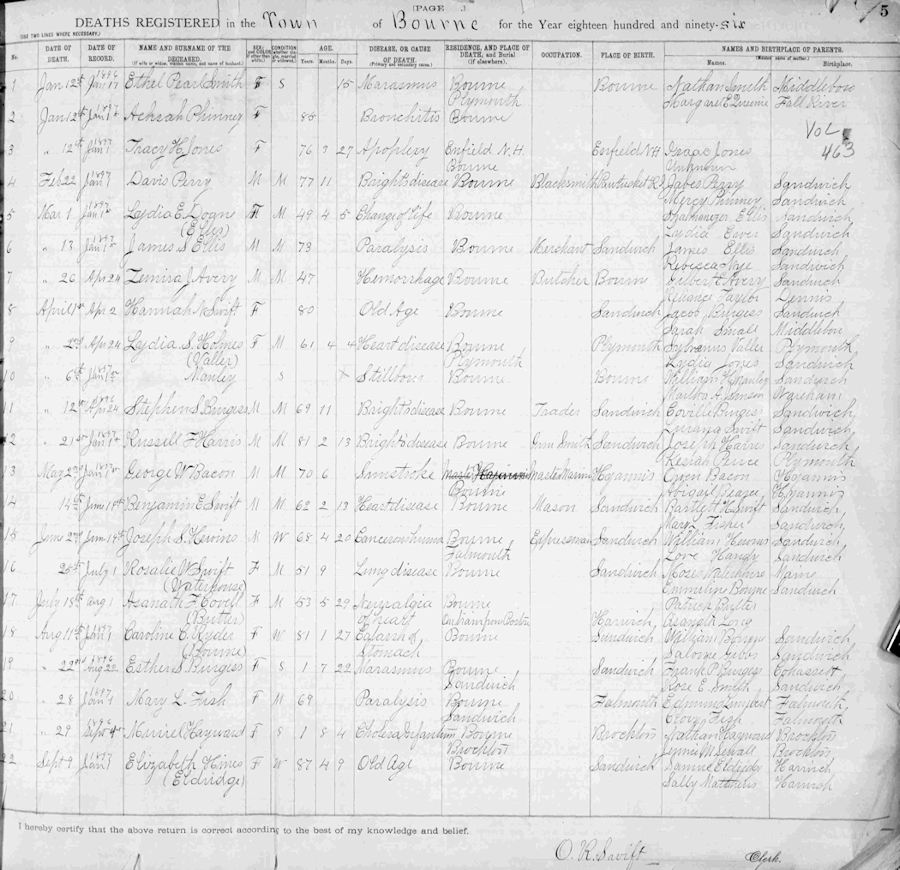 [PAGE ]
5
DEATHS REGISTERED in the Town of Bourne for the Year eighteen hundred and ninety-six
(USE TWO LINES WHERE NECESSARY.)
No. DATE OF DEATH. DATE OF RECORD. NAME AND SURNAME OF THE DECEASED. SEX CONDITION AGE. Years. Months. Days. DISEASE, OR CAUSE OF DEATH. RESIDENCE, AND PLACE OF DEATH, and Burial (if elsewhere). OCCUPATION. PLACE OF BIRTH. NAMES AND BIRTHPLACE OF PARENTS. Names. Birthplace.
1 Jan 12 1896 Jan Ethel Pearl Smith F S 15 Marasmus Bourne Bourne Nathan Smith Middleboro
Plymouth Margaret Fall River
2 Jan 12 Jan 1 Achsah Phinney F 85 Bronchitis Bourne
Vol 463
3 " 12 1897 Jan 1 Tracy H Jones F 76 3 27 Apoplexy Enfield N.H. Enfield NH Isaac Jones
Bourne Unknown
4 Feb 22 1897 Jan 1 Davis Perry M M 77 11 Brights disease Bourne Blacksmith Pawtucket R.I. Jabes Perry Sandwich
Mercy Phinney Sandwich
5 Mar 1 1897 Jan 1 Lydia E. F M 49 4 5 Change of Life Bourne Ellis Sandwich
(Ellis) Lydia Sandwich
6 " 13 1897 Jan 1 James S Ellis M M 78 Paralysis Bourne Merchant Sandwich James Ellis Sandwich
Rebecca Nye Sandwich
7 " 26 Apr 24 Zemira J Avery M M 47 Hemorrhage Bourne Butcher Bourne Avery Sandwich
Taylor Dennis
8 April 1 Apr 2 Hannah Swift F 80 Old Age Bourne Sandwich Jacob Burgess Sandwich
Sarah Small Middleboro
9 " Apr 24 Lydia S. Holmes F M 61 4 4 Heart disease Bourne Plymouth Sylvanus Valler Plymouth
(Valler) Plymouth Lydia Jones Sandwich
10 " 6 Jan 1 Manley S Stillborn Bourne Bourne William Manley Sandwich
Martha A Johnson Wareham
11 " 12 1896 Apr 24 Stephen S Burgess M M 69 11 Brights disease Bourne Trader Sandwich Burgess Sandwich
Swift Sandwich
12 " 21 1897 Jan 1 Russell F Harris M M 81 2 13 Brights disease Bourne Gun Smith Sandwich Joseph Harris Sandwich
Keziah Plymouth
13 May 2 Jan 1 George W Bacon M M 70 6 Sunstroke Master Mariner Hyannis Owen Bacon Hyannis
Bourne Abigail Hyannis
14 14 June 1 Benjamin E Swift M M 62 2 13 Heart disease Bourne Mason Sandwich Bartlett H Swift Sandwich
Mary Fisher Sandwich
15 June 2 June 19 Joseph S Hewins M W 68 4 20 Bourne Expressman Sandwich William Hewins Sandwich
Falmouth Love Handy Sandwich
16 July 1 Rosalie W Swift F M 51 9 Lung disease Bourne Sandwich Moses Waterhouse Maine
(Waterhouse) Emmeline Bourne Sandwich
17 July 18 Aug 1 Asanath F Covell F M 53 5 29 Neuralgia Bourne Patrick Butler
(Butler) of heart Harwich Asanath
18 Aug 11 1897 Jan 1 Caroline C Ryder F W 81 1 27 Catarrh of Bourne Sandwich William Bourne Sandwich
(Bourne) Stomach Gibbs Sandwich
19 " 22 1896 Aug 22 Esther S Burgess F S 1 7 22 Marasmus Bourne Sandwich Frank P Burgess Cohassett
Sandwich Rose E. Smith Sandwich
20 " 28 1897 Jan 1 Mary L. Fish F M 69 Paralysis Bourne Falmouth Edmund Falmouth
Sandwich Fish Falmouth
21 " 29 1896 Sept Muriel Hayward F S 1 8 4 Cholera Infantum Bourne Brockton Nathan Hayward Brockton
Brockton Sewall Brockton
22 Sept 9 1897 Jan 1 Elizabeth Himes F W 87 4 9 Old Age Bourne Sandwich Eldridge Harwich
(Eldridge) Sally Matthews Harwich
I hereby certify that the above return is correct according to the best of my knowledge and belief.
O. R. Swift Clerk.